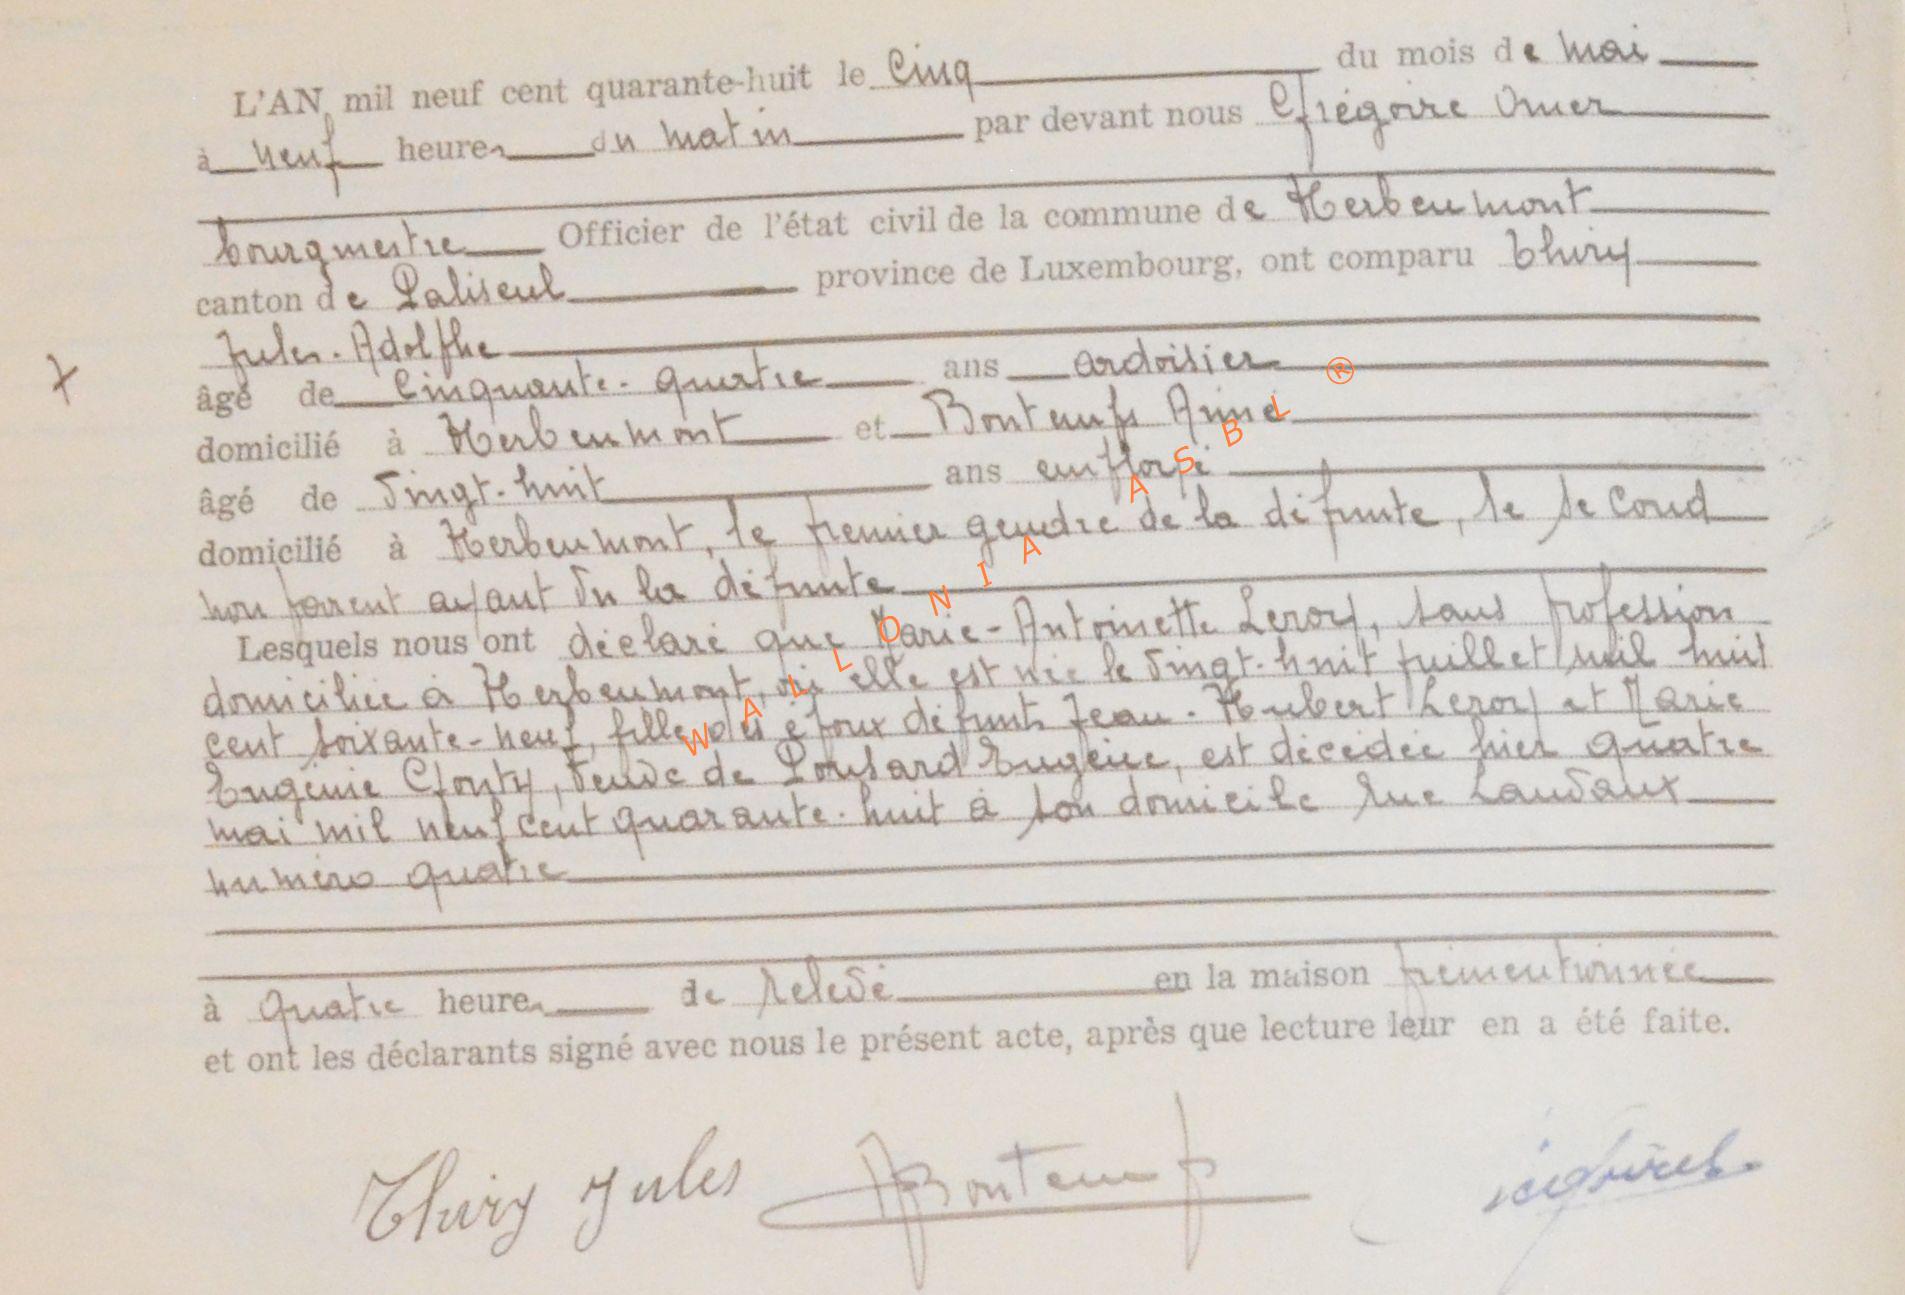 L'AN mil neuf cent quarante-huit le Cinq du mois de mai
à neuf heures du matin par devant nous Grégoire Omer
bourgmestre Officier de l'état civil de la commune de Herbeumont
canton de Paliseul province de Luxembourg, ont comparu Thiry
Jules-Adolphe
âgé de Cinquante-quatre ans ardoisier
domicilié à Herbeumont et Bontemps Aimé
âgé de Vingt-huit ans employé
domicilié à Herbeumont, le premier gendre de la défunte, le second
non parent ayant vu la défunte
Lesquels nous ont déclaré que Marie-Antoinette Leroy, sans profession
domiciliée à Herbeumont, où elle est née le Vingt-huit juillet mil huit
cent soixante-neuf, fille des époux défunts Jean-Hubert Leroy et Marie
Eugénie Gfonty, Veuve de Ponsard Eugène, est décédée hier quatre
mai mil neuf cent quarante-huit à son domicile rue Lauvaux
numéro quatre
à quatre heures de relevé en la maison prémentionnée
et ont les déclarants signé avec nous le présent acte, après que lecture leur en a été faite.
Thiry Jules ABontemps
WALLONIA ASBL ®